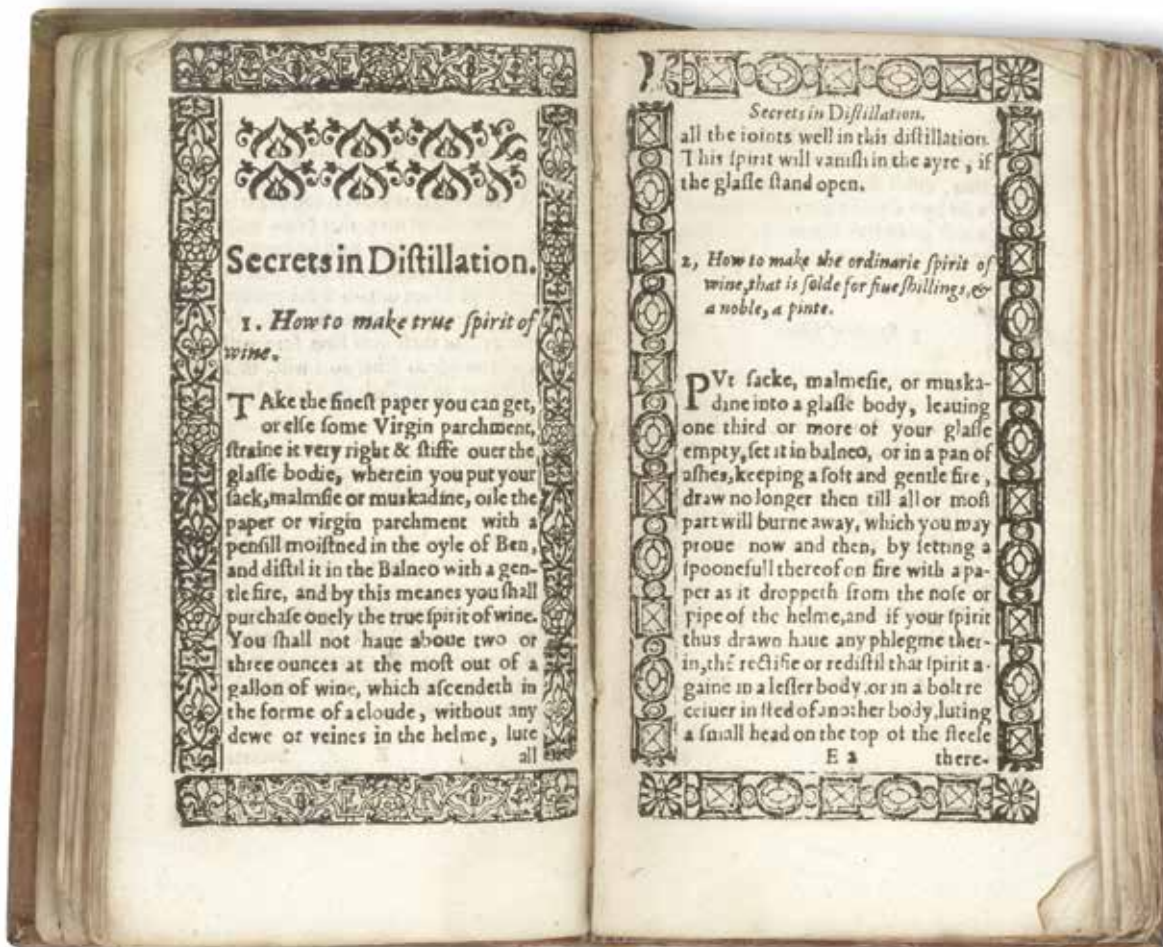 Secrets in Diſtillation.
1. How to make true ſpirit of
wine.
TAke the fineſt paper you can get,
or elſe ſome Virgin parchment,
ſtraine it very right & ſtiffe ouer the
glaſſe bodie, wherein you put your
ſack, malmſie or muskadine, oile the
paper or virgin parchment with a
penſill moiſtned in the oyle of Ben,
and diſtil it in the Balneo with a gen-
tle fire, and by this meanes you ſhall
purchaſe onely the true ſpirit of wine.
You ſhall not haue aboue two or
three ounces at the moſt out of a
gallon of wine, which aſcendeth in
the forme of a cloude, without any
dewe or veines in the helme, lute
all
Secrets in Diſtillation.
all the ioints well in this diſtillation.
This ſpirit will vaniſh in the ayre, if
the glaſſe ſtand open.
2, How to make the ordinarie ſpirit of
wine, that is ſolde for fiue ſhillings, &
a noble, a pinte.
PVt ſacke, malmeſie, or muska-
dine into a glaſſe body, leauing
one third or more of your glaſſe
empty, ſet it in balneo, or in a pan of
aſhes, keeping a ſoft and gentle fire,
draw no longer then till all or moſt
part will burne away, which you may
proue now and then, by ſetting a
ſpoonefull thereof on fire with a pa-
per as it droppeth from the noſe or
pipe of the helme, and if your ſpirit
thus drawn haue any phlegme ther-
in, thē rectifie or rediſtil that ſpirit a-
gaine in a leſſer body, or in a bolt re
ceiuer in ſted of another body, luting
a ſmall head on the top of the ſteele
E 2 there-